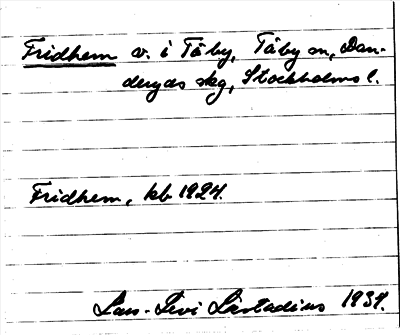 Fridhem v. i Täby, Täby sn, Dan-
deryds skg, Stockholms l.
Fridhem, kb 1924.
Lars-Levi Læstadius 1934.